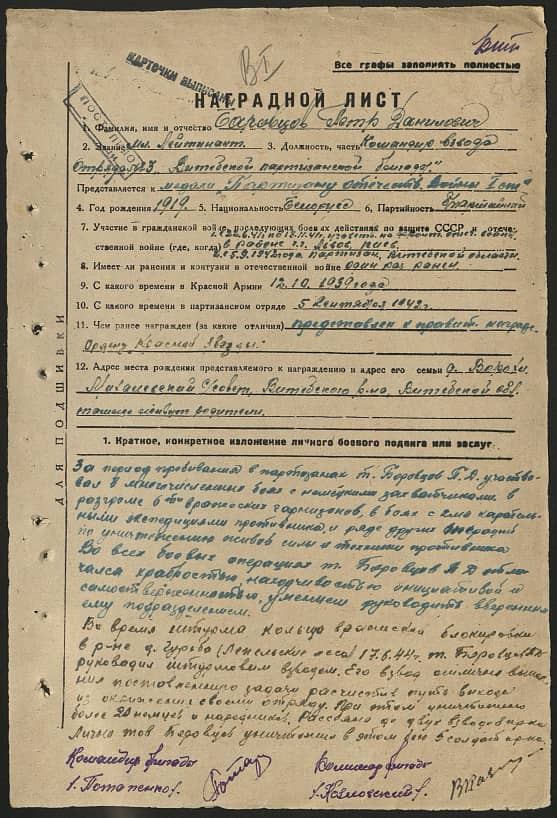 Все графы заполнять полностью
КАРТОЧКИ ВЫПИСАНЫ
НАГРАДНОЙ ЛИСТ
1. Фамилия, имя и отчество Боровцов Петр Данилович
2. Звание Мл. Лейтинант. 3. Должность, часть Командир взвода
Отряда №3, Витебской партизанской бригады"
Представляется к медали „Партизану отечеств. войны I ст"
4. Год рождения 1919. 5. Национальность Белорус 6. Партийность Б/партийный
7. Участие в гражданской войне, последующих боевых действиях по защите СССР и отече-
ственной войне (где, когда) в районе г.г. Львов, Киев,
с 5.9.1942 года партизан, Витебской области.
8. Имеет ли ранения и контузии в отечественной войне один раз ранен.
9. С какого времени в Красной Армии 12.10.1939 года
10. С какого времени в партизанском отряде 5 Сентября 1942 г.
11. Чем ранее награжден (за какие отличия) представлен к правит. награде
Ордену Красной Звезды.
12. Адрес места рождения представляемого к награждению и адрес его семьи
С/совет, Витебского р-на, Витебской обл.
родители.
ДЛЯ ПОДШИВКИ
1. Краткое, конкретное изложение личного боевого подвига или заслуг
За период пребывания в партизанах т. Боровцов П.Д. участво-
вал в многочисленных боях с немецкими захватчиками. в
разгроме 6ти вражеских гарнизонов, в боях с 
ными экспедициями противника и ряде других операций
по уничтожению живой силы и техники противника
Во всех боевых операциях т. Боровцов П.Д. отли-
чался храбростью, находчивостью инициативой и
самоотверженностью, умением руководить вверенным
ему подразделением.
Во время штурма кольца вражеской блокировки
в р-не д. (Лепельские леса) 17.6.44 г. т. Боровцов П.Д.
руководил штурмовым взводом. Его взвод отлично выпол-
нил поставленную задачу расчистив путь выхода
из окружения своему отряду. При этом уничтожено
более 20 немцев и народников. Рассеяно до двух взводов пр-ка
Лично тов Боровцов уничтожил в этом бою 5 солдат пр-ка.
Командир бригады Комиссар бригады
/. Потапенко/. /. Козловский/.